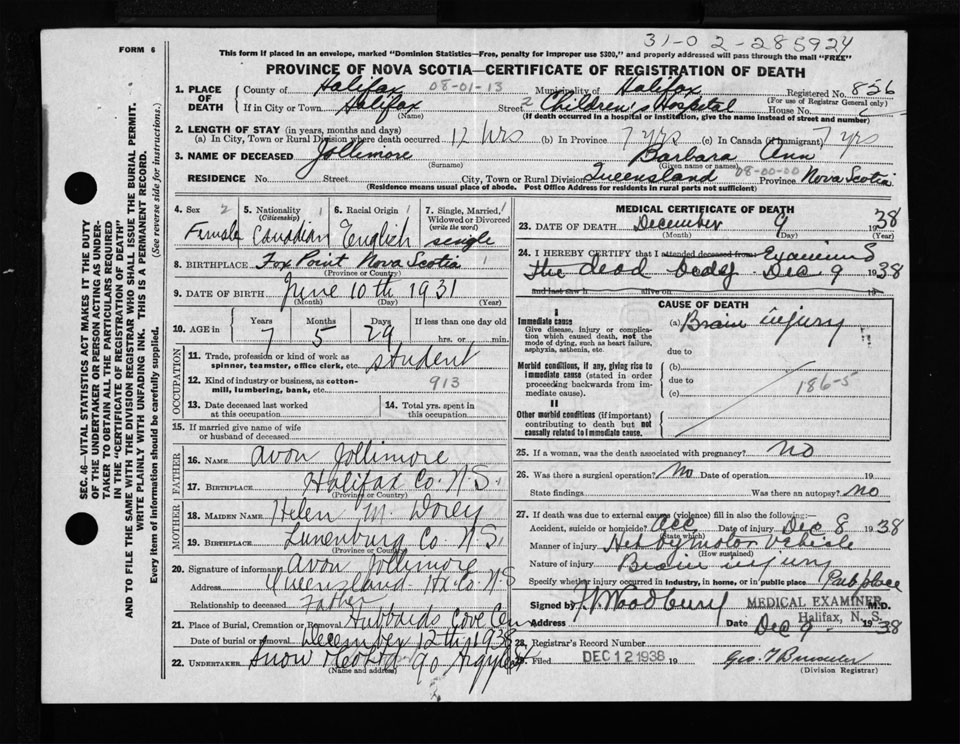 31-02-285924
FORM 6
This form if placed in an envelope, marked "Dominion Statistics—Free, penalty for improper use $300," and properly addressed will pass through the mail "FREE"
PROVINCE OF NOVA SCOTIA—CERTIFICATE OF REGISTRATION OF DEATH
1. PLACE OF DEATH
County of Halifax 08-01-13 Municipality of Halifax Registered No. 856
(For use of Registrar General only)
If in City or Town Halifax Street 2 Children's Hospital House No.
(Name) (If death occurred in a hospital or institution, give the name instead of street and number)
2. LENGTH OF STAY (in years, months and days)
(a) In City, Town or Rural Division where death occurred 12 hrs (b) In Province 7 yrs (c) In Canada (if immigrant) 7 yrs
3. NAME OF DECEASED Jollimore Barbara Ann
(Surname) (Given name or names)
RESIDENCE No. Street City, Town or Rural Division Queensland 08-00-00 Province Nova Scotia
(Residence means usual place of abode. Post Office Address for residents in rural parts not sufficient)
4. Sex 2 Female
5. Nationality (Citizenship) 1 Canadian
6. Racial Origin 1 English
7. Single, Married, Widowed or Divorced (write the word) single
8. BIRTHPLACE Fox Point Nova Scotia 1
(Province or Country)
9. DATE OF BIRTH June 10th 1931
(Month) (Day) (Year)
10. AGE in Years 7 Months 5 Days 29 If less than one day old hrs. or min.
OCCUPATION
11. Trade, profession or kind of work as spinner, teamster, office clerk, etc. student
12. Kind of industry or business, as cotton-mill, lumbering, bank, etc. 913
13. Date deceased last worked at this occupation
14. Total yrs. spent in this occupation
15. If married give name of wife or husband of deceased
FATHER
16. NAME Avon Jollimore
17. BIRTHPLACE Halifax Co. N.S.
(Province or Country)
MOTHER
18. MAIDEN NAME Helen M. Dorey
19. BIRTHPLACE Lunenburg Co N.S.
(Province or Country)
20. Signature of informant Avon Jollimore
Address Queensland Hx. Co. N.S
Relationship to deceased Father
21. Place of Burial, Cremation or Removal Hubbards Cove Cem
Date of burial or removal December 12th 1938
22. UNDERTAKER Snow & Co Ltd 90 Argyle St
(Name and Address)
MEDICAL CERTIFICATE OF DEATH
23. DATE OF DEATH December 9 1938
(Month) (Day) (Year)
24. I HEREBY CERTIFY that I attended deceased from Examined
the dead body Dec 9 1938
and last saw h alive on 19
CAUSE OF DEATH
I
Immediate cause
Give disease, injury or complication which caused death, not the mode of dying, such as heart failure, asphyxia, asthenia, etc.
(a) Brain injury
due to
Morbid conditions, if any, giving rise to immediate cause (stated in order proceeding backwards from immediate cause).
(b)
due to
(c) 186-5
II
Other morbid conditions (if important) contributing to death but not causally related to immediate cause.
25. If a woman, was the death associated with pregnancy? no
26. Was there a surgical operation? No Date of operation 19
State findings Was there an autopsy? no
27. If death was due to external causes (violence) fill in also the following:
Accident, suicide or homicide? acc Date of injury Dec 8 1938
(State which)
Manner of injury Hit by motor vehicle
(How sustained)
Nature of injury Brain injury
Specify whether injury occurred in industry, in home, or in public place Pub place
Signed by Woodbury MEDICAL EXAMINER M.D.
Halifax, N. S.
Address Date Dec 9 - 1938
28. Registrar's Record Number
29. Filed DEC 12 1938 19
(Division Registrar)
SEC. 46—VITAL STATISTICS ACT MAKES IT THE DUTY
OF THE UNDERTAKER OR PERSON ACTING AS UNDER-
TAKER TO OBTAIN ALL THE PARTICULARS REQUIRED
IN THE "CERTIFICATE OF REGISTRATION OF DEATH"
AND TO FILE THE SAME WITH THE DIVISION REGISTRAR WHO SHALL ISSUE THE BURIAL PERMIT.
WRITE PLAINLY WITH UNFADING INK. THIS IS A PERMANENT RECORD.
Every item of information should be carefully supplied. (See reverse side for instructions.)